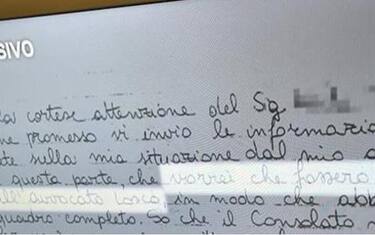 SIVO
la cortese attenzione del Sg
me promesso vi invio le informazio
te sulla mia situazione dal mio a
questa parte, che vorrei che fossero
all'avvocato Losco, in modo che abb
quadro completo. So che il Consolato